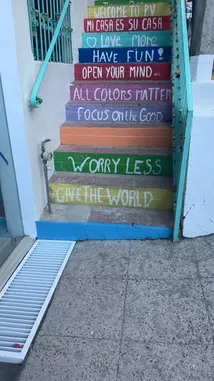 WELCOME TO PV
MI CASA ES SU CASA
LOVE MORE
HAVE FUN!
OPEN YOUR MIND
ALL COLORS MATTER
FOCUS ON the GOOD
WORRY LESS
GIVE THE WORLD